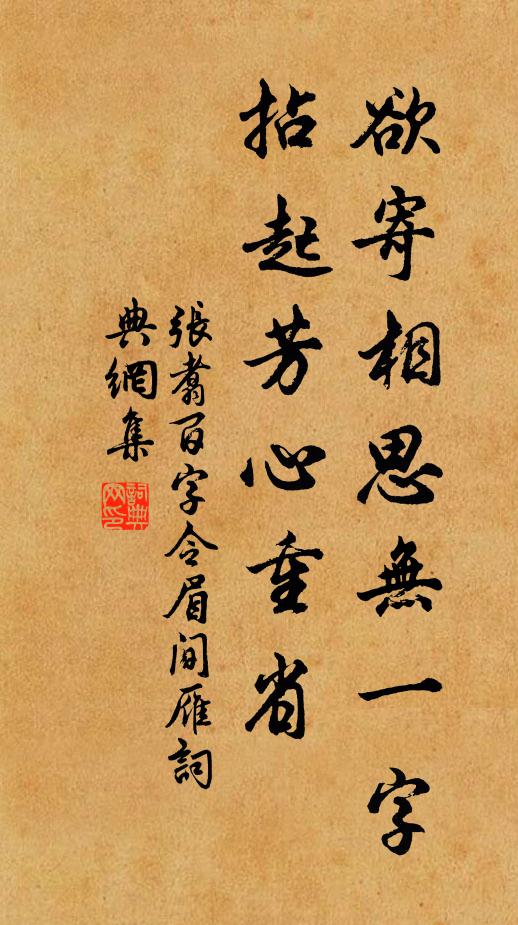 欲寄相思無一字
拈起芳心重省
張翥百字令眉間雁詞
典網集
詞典網印